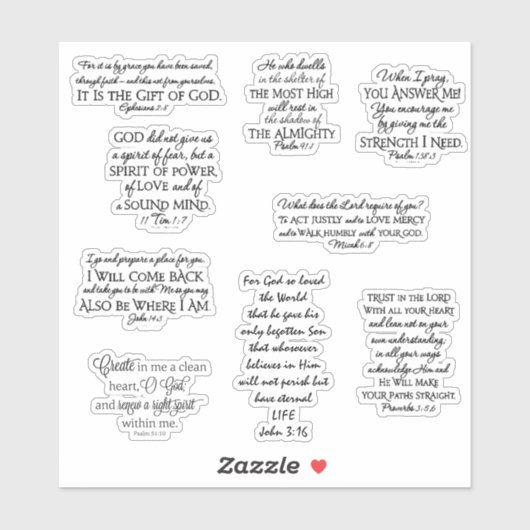 For it is by grace you have been saved,
through faith – and this not from yourselves,
IT IS THE GIFT OF GOD.
Ephesians 2:8
He who dwells
in the shelter of
THE MOST HIGH
will rest in
the shadow of
THE ALMIGHTY
Psalm 91:1
When I pray,
YOU ANSWER ME!
You encourage me
by giving me the
STRENGTH I NEED.
Psalm 138:3
GOD did not give us
a spirit of fear, but a
SPIRIT OF POWER,
OF LOVE and of
a SOUND MIND.
11 Tim 1:7
What does the Lord require of you?
TO ACT JUSTLY and to LOVE MERCY
and to WALK HUMBLY with YOUR GOD.
Micah 6:8
I go and prepare a place for you.
I WILL COME BACK
and take you to be with Me so you may
ALSO BE WHERE I AM.
John 14:3
For God so loved
the World
that he gave his
only begotten Son
that whosoever
believes in Him
will not perish but
have eternal
LIFE
John 3:16
TRUST in THE LORD
WITH ALL YOUR HEART
and lean not on your
own understanding;
in all your ways
acknowledge Him and
HE WILL MAKE
YOUR PATHS STRAIGHT.
Proverbs 3:5,6
Create in me a clean
heart, O God,
and renew a right spirit
within me.
Psalm 51:10
Zazzle